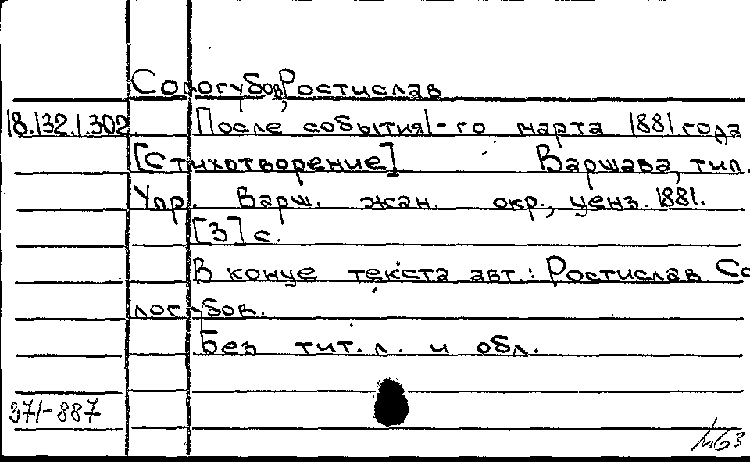 Сологубов, Ростислав
18.132.1.302 После события 1-го марта 1881 года
[Стихотворение] Варшава, тип.
Упр. Варш. жан. окр., ценз. 1881.
[3] с.
В конце текста авт.: Ростислав Со
логубов.
Без тит. л. и обл.
371-887